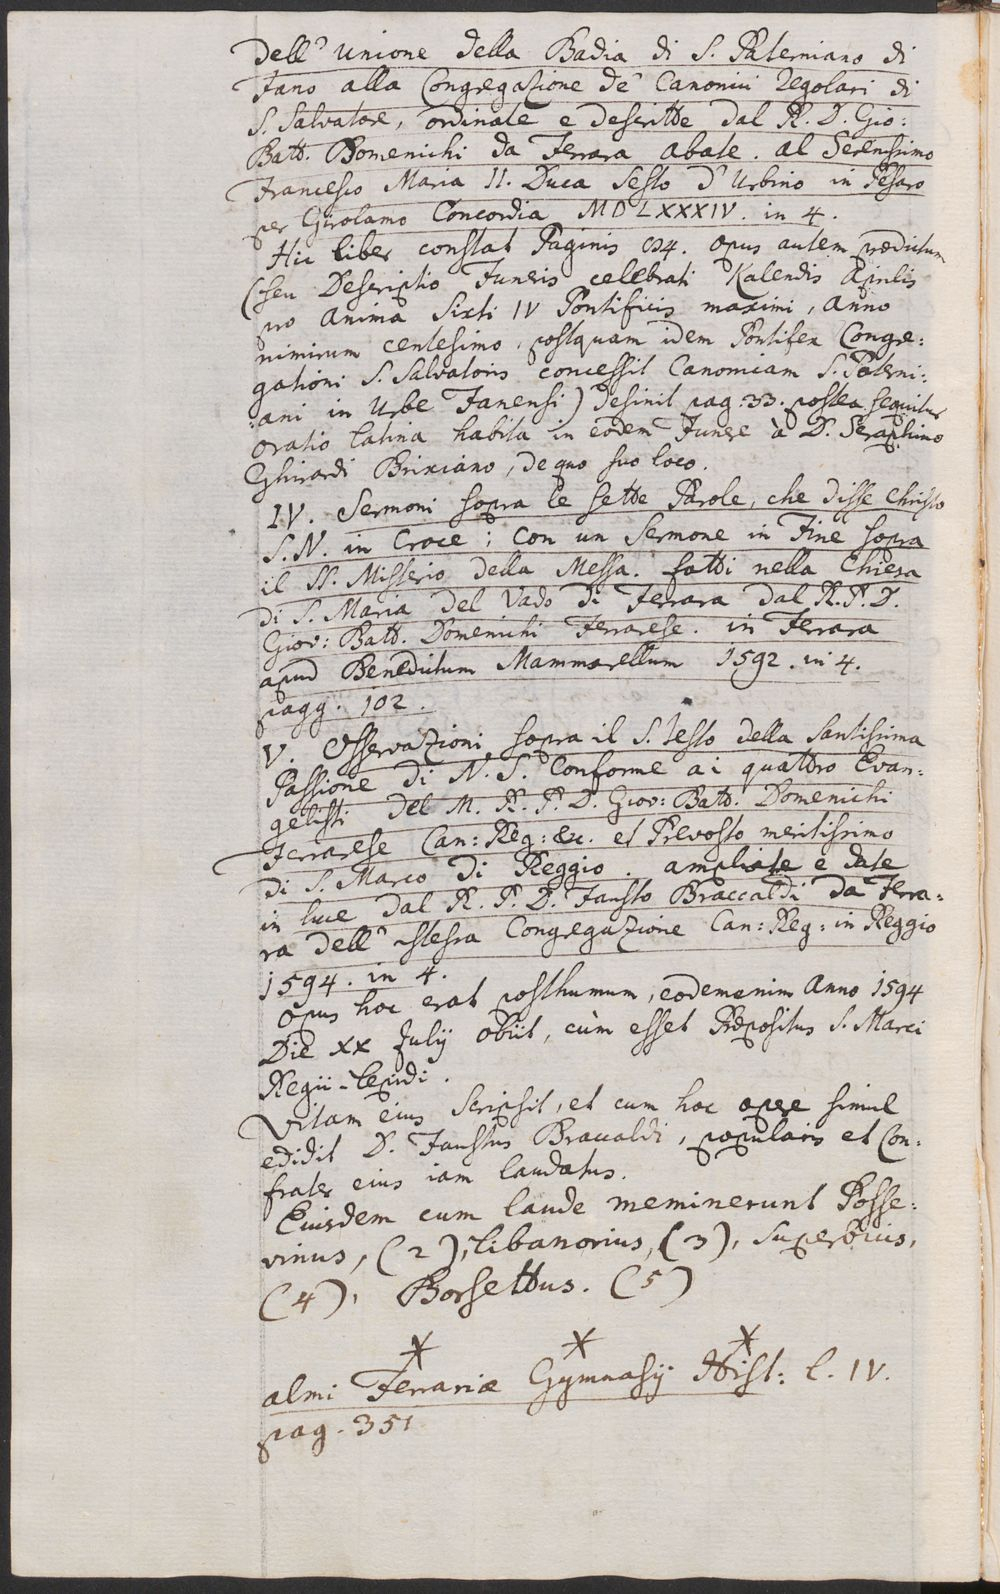 dell' unione della Badia di S. Paterniano di
Fano alla Congregazione de' Canonici Regolari di
S. Salvatore, ordinate e descritte dal R. D. Gio:
Batt. Domenichi da Ferrara abate. al Serenissimo
Francesco Maria II. Duca Sesto d'Urbino in Pesaro
per Girolamo Concordia MDLXXXIV. in 4.
Hic liber constat Paginis 4. opus autem prædictum
(seu Descriptio Funeris celebrati Kalendis Aprilis
pro anima Sixti IV Pontificis maximi, anno
nimirum centesimo, postquam idem Pontifex Congre:
gationi S. Salvatoris concessit Canoniam S. Paterni:
:ani in Urbe Fanensi) desinit pag. 33. postea sequitur
oratio latina habita in eodem Funere à D. Seraphino
Ghirardi Brixiano, de quo suo loco.
IV. Sermoni sopra le sette Parole, che disse Christo
S. N. in Croce; con un Sermone in Fine sopra
il SS. Misterio della Messa. fatti nella Chiesa
di S. Maria del Vado di Ferrara dal R. P. D.
Giov: Batt. Domenichi Ferrarese. in Ferrara
apud Benedictum Mammarellum 1592. in 4.
pagg. 102.
V. Osservazioni sopra il S. Testo della Santissima
Passione di N. S. Conforme ai quattro Evan:
gelisti del M. R. P. D. Giov: Batt. Domenichi
Ferrarese Can: Reg: &c. et Prevosto meritissimo
di S. Marco di Reggio. ampliate e date
in luce dal R. P. D. Fausto Braccaldi da Ferra:
ra dell' stessa Congregazione Can: Reg: in Reggio
1594. in 4.
opus hoc erat posthumum, eodem enim Anno 1594
Die XX Julij obiit, cùm esset Præpositus S. Marci
Regii-Lepidi.
Vitam eius scripsit, et cum hoc opere simul
edidit D. Faustus Bracaldi, popularis et Con:
frater eius iam laudatus.
Eiusdem cum laude meminerunt Posse:
vinus, (2), Libanorius, (3), Superbius,
(4), Borsettus. (5)
* * *
almi Ferrariæ Gymnasij Hist: l. IV.
pag. 351